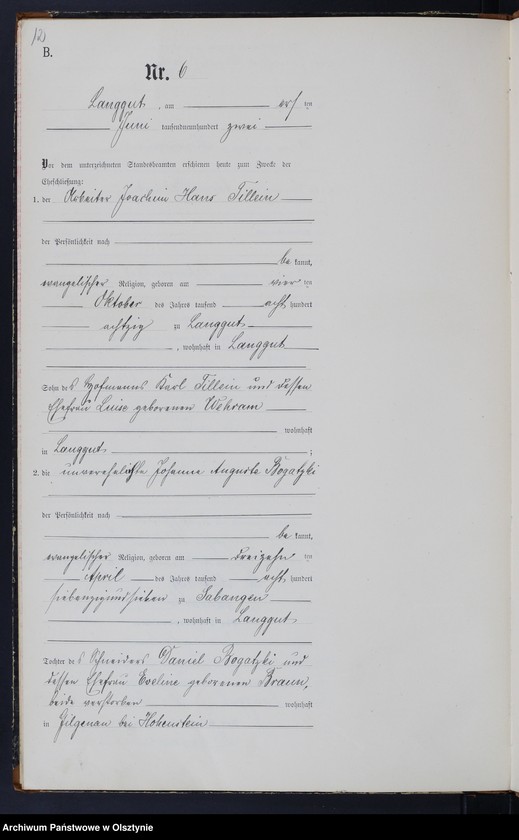 B.
Nr. 6
Langgut, am ersten
Juni tausendneunhundert zwei
Vor dem unterzeichneten Standesbeamten erschienen heute zum Zwecke der
Eheschließung:
1. der Arbeiter Joachim Hans Tillein
der Persönlichkeit nach
be kannt,
evangelischer Religion, geboren am vier ten
Oktober des Jahres tausend acht hundert
achtzig zu Langgut
, wohnhaft in Langgut
Sohn des Hofmanns Karl Tillein und dessen
Ehefrau Luise geborenen Wehram
wohnhaft
in Langgut ;
2. die unverehelichte Johanne Auguste Bogatzki
der Persönlichkeit nach
be kannt,
evangelischer Religion, geboren am dreizehn ten
April des Jahres tausend acht hundert
siebenzigundsieben zu Sabangen
, wohnhaft in Langgut
Tochter des Schneiders Daniel Bogatzki und
dessen Ehefrau Eveline geborenen Braun,
beide verstorben wohnhaft
in Gilgenau bei Hohenstein
Archiwum Państwowe w Olsztynie